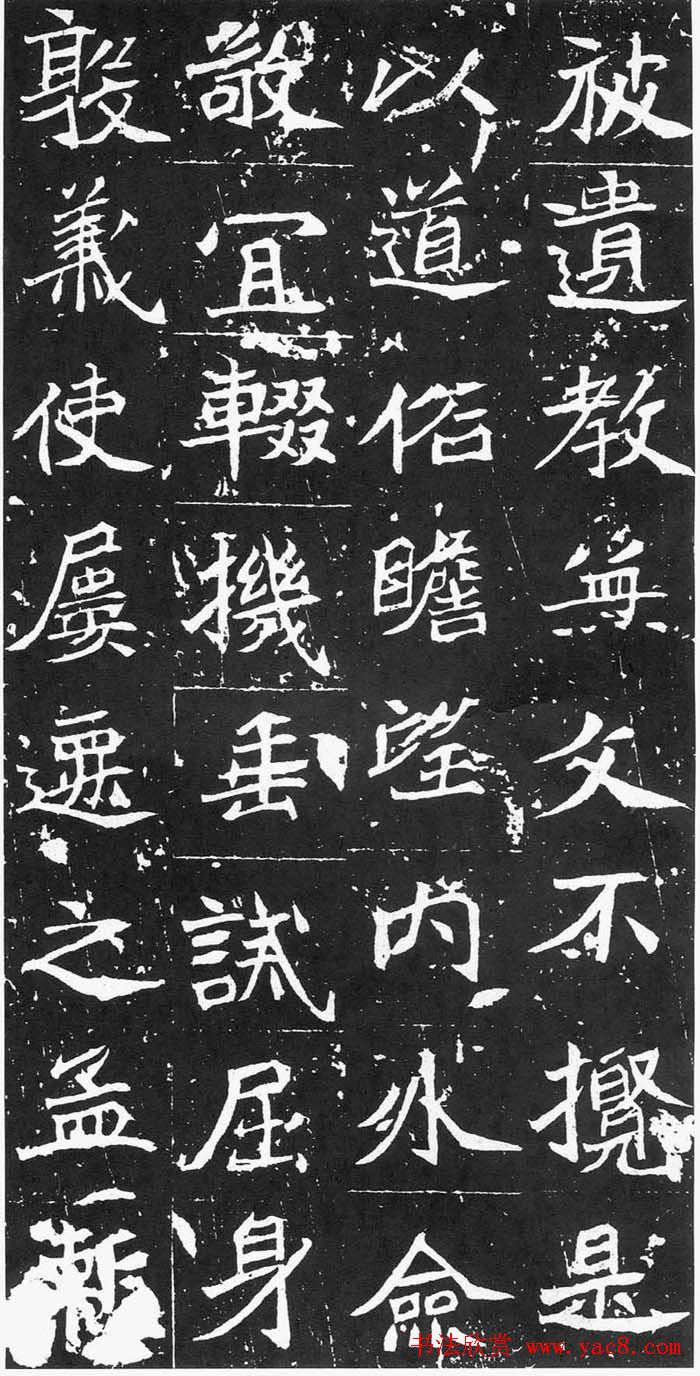 被遺教無文不攬是
以道俗瞻望内外僉
敬宜輟機垂試屈身
殷義使屢之孟
书法欣赏 www.yac8.com